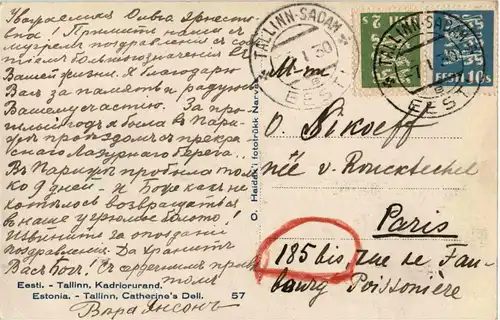 Уважаемая Ольга Эрнестов-
на! Примите наши с
мужем поздравления с сов
Вашей жизни. Я благодарю
Васъ за память и радуюсь
Вашему счастью. За про-
шлый годъ я была в Пари-
жѣ проѣздомъ с прекрас-
наго Лазурнаго берега...
Въ Парижѣ пробыла толь
ко 9 дней - и Боже какъ не
хотѣлось возвращаться
в наше угрюмое болото!
Извините за опозданiе
поздравленiя. Да хранитъ
Васъ Богъ! Съ сердечнымъ привѣ
томъ
Eesti. - Tallinn, Kadriorurand.
Estonia. - Tallinn, Catherine's Dell. 57
Вѣра Янсонъ
O. Haidak'i fototrükk Narvas
TALLINN-SADAM
EESTI
EESTI
2 S
TALLINN-SADAM
EESTI
EESTI 10 S
M-me
O. Sikoeff
née v. Roncksechel
Paris
185 bis, rue de Fau-
bourg Poissonière